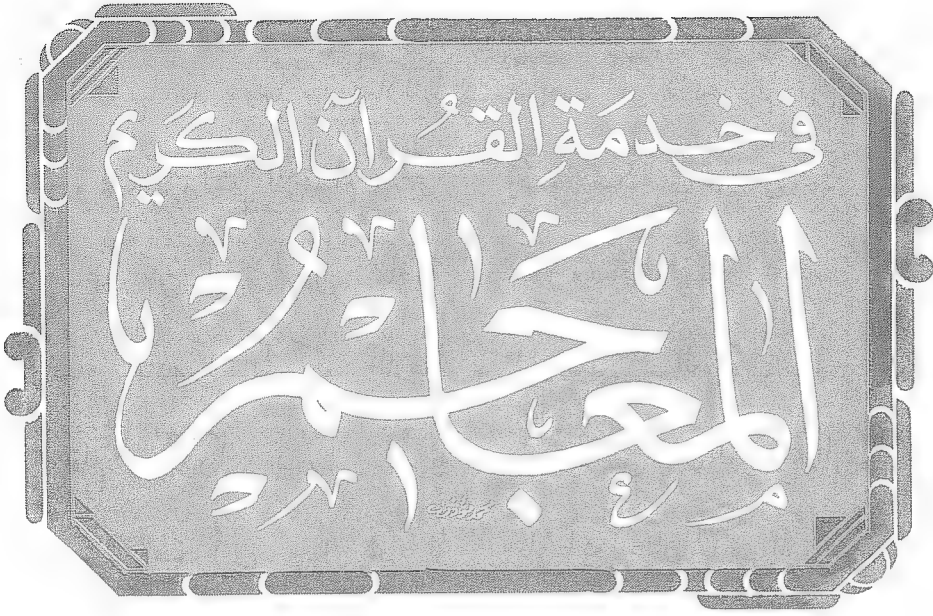 فى خدمَةِ القُرآن الكَريم
المعاجمُ